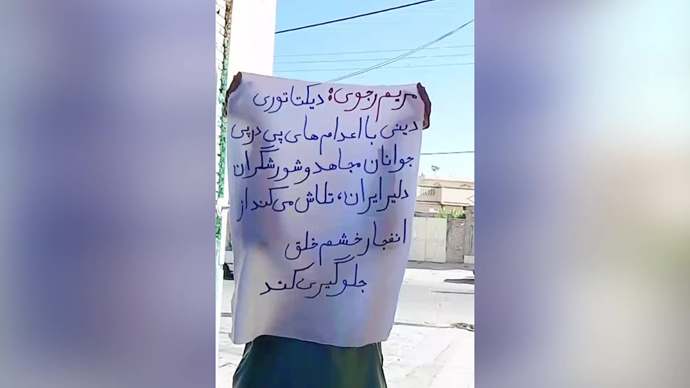 مریم رجوی: دیکتاتوری
دینی با اعدام های پی در پی
جوانان مجاهد و شورشگران
دلیر ایران، تلاش می کند از
انفجار خشم خلق
جلوگیری کند